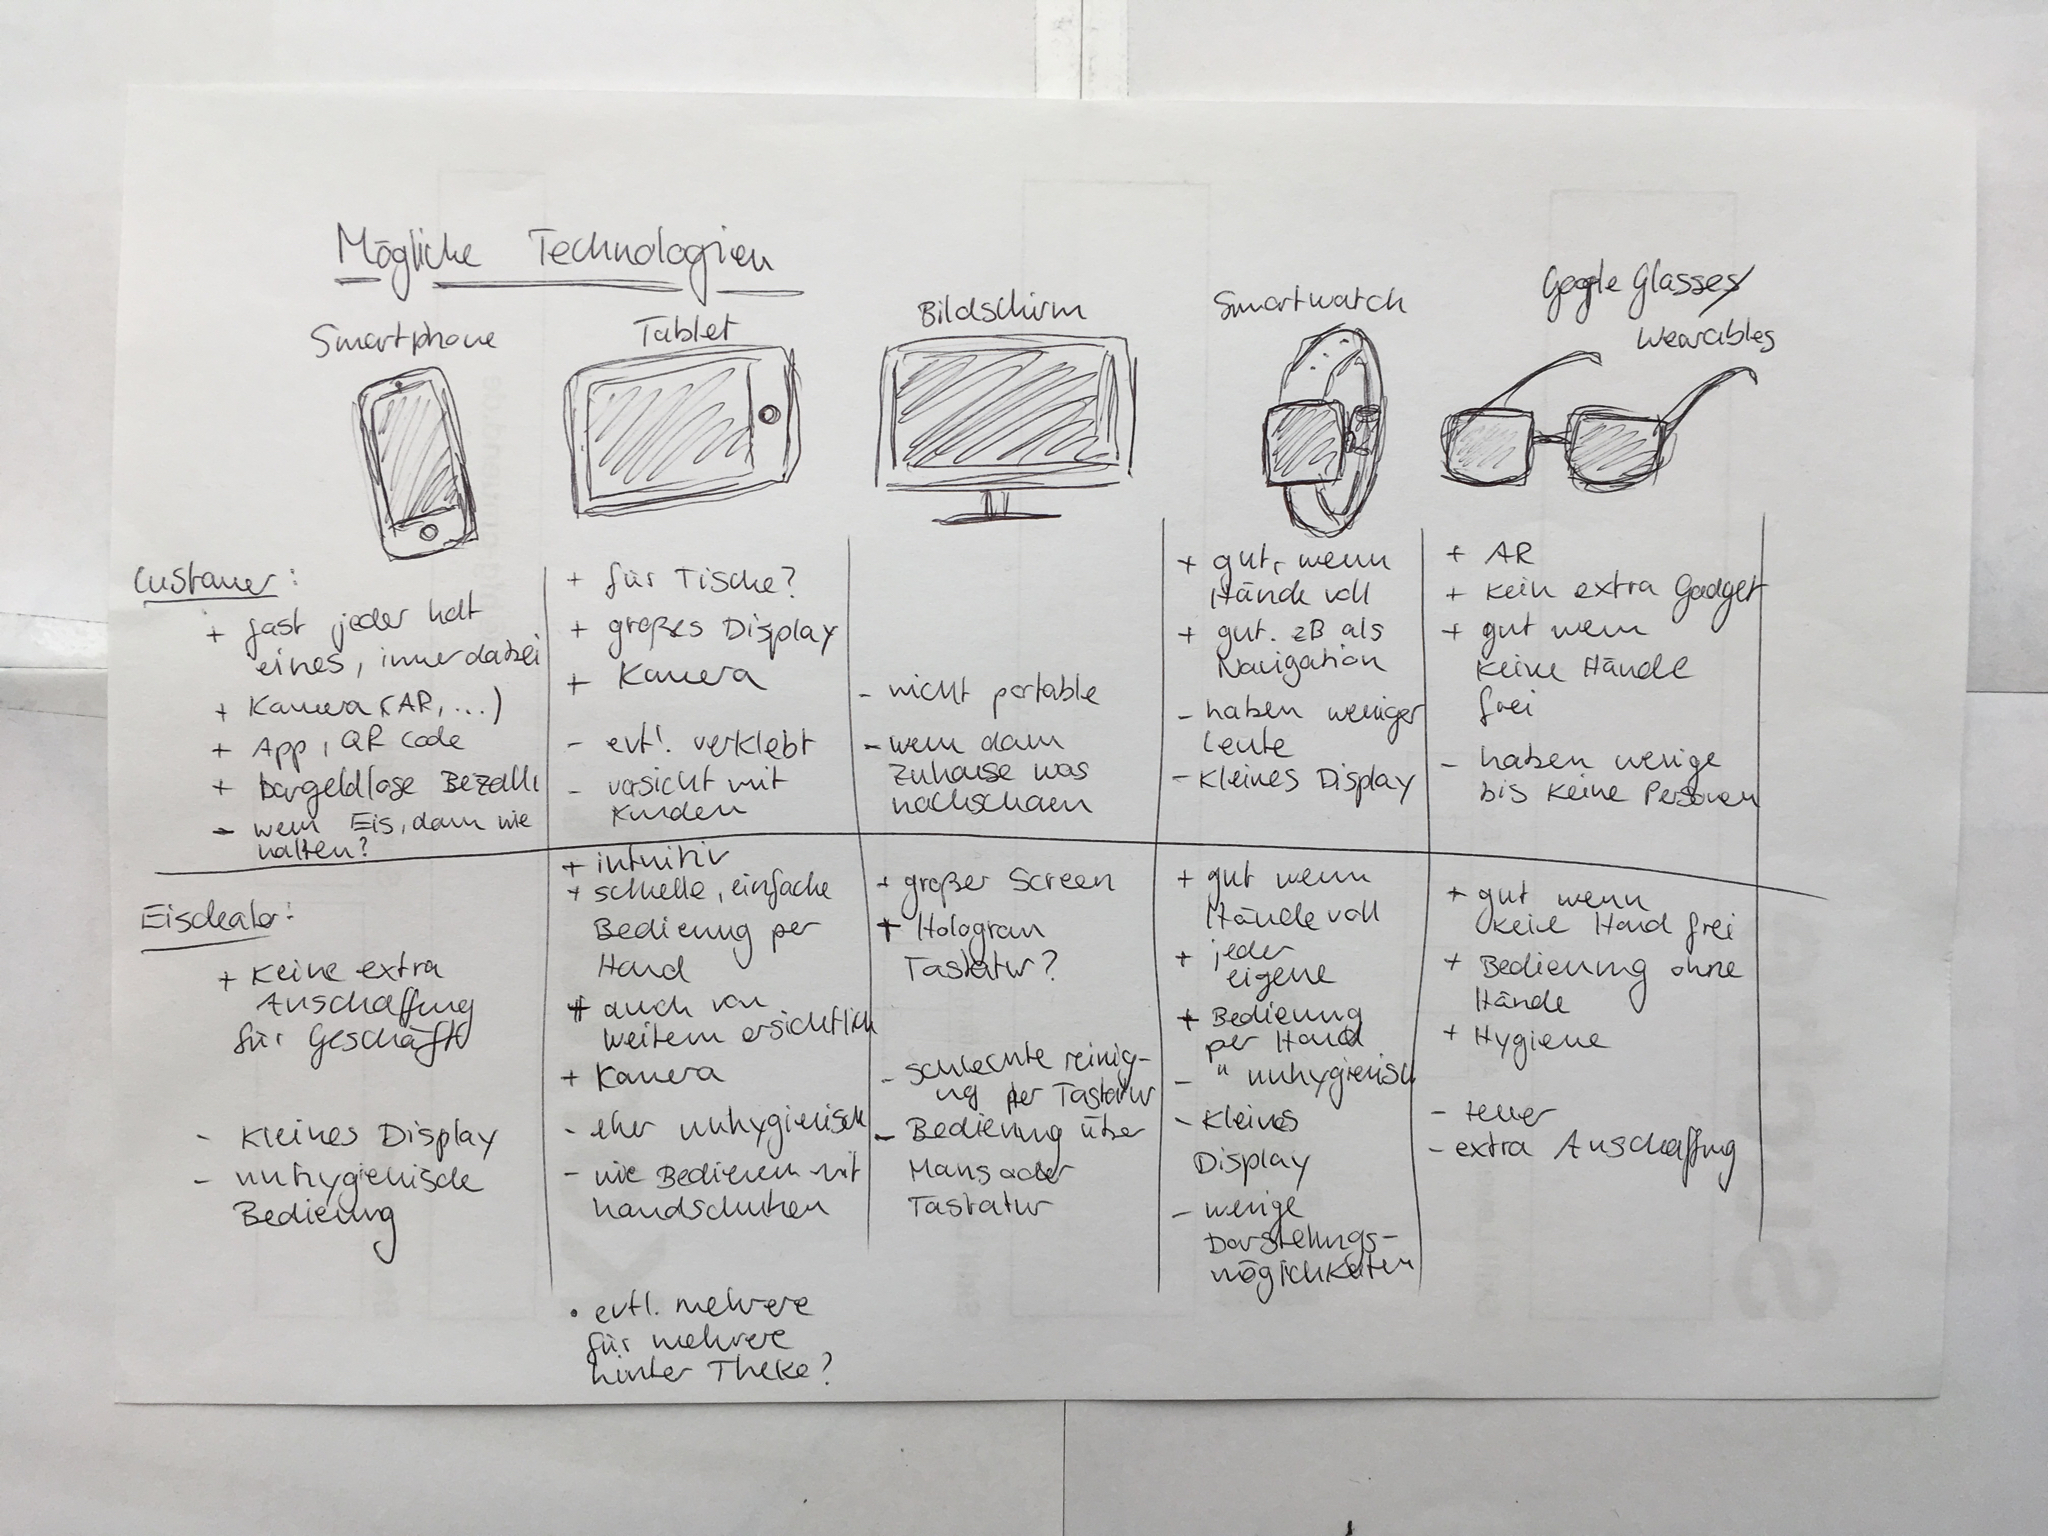 Mögliche Technologien
Smartphone
Tablet
Bildschirm
Smartwatch
Google Glasses/
Wearables
Customer:
+ fast jeder hat
eines, immer dabei
+ Kamera (AR, ...)
+ App, QR Code
+ bargeldlose Bezahl
- wenn Eis, dann wie
halten?
+ für Tische?
+ großes Display
+ Kamera
- evtl. verklebt
- vorsicht mit
Kunden
- nicht portable
- wenn dann
zuhause was
nachschauen
+ gut, wenn
Hände voll
+ gut. zB als
Navigation
- haben weniger
Leute
- kleines Display
+ AR
+ kein extra Gadget
+ gut wenn
keine Hände
frei
- haben wenige
bis keine Personen
Eisdealer:
+ keine extra
Anschaffung
für Geschäft
- kleines Display
- unhygienische
Bedienung
+ intuitiv
+ schnelle, einfache
Bedienung per
Hand
+ auch von
weitem ersichtlich
+ Kamera
- eher unhygienisch
- wie Bedienen mit
handschuhen
• evtl. mehrere
für mehrere
hinter Theke?
+ großer Screen
+ Hologram
Tastatur?
- schlechte reinig-
ung der Tastatur
- Bedienung über
Maus oder
Tastatur
+ gut wenn
Hände voll
+ jeder
eigene
+ Bedienung
per Hand
- " unhygienisch
- kleines
Display
- wenige
Darstellungs-
möglichkeiten
+ gut wenn
keine Hand frei
+ Bedienung ohne
Hände
+ Hygiene
- teuer
- extra Anschaffung